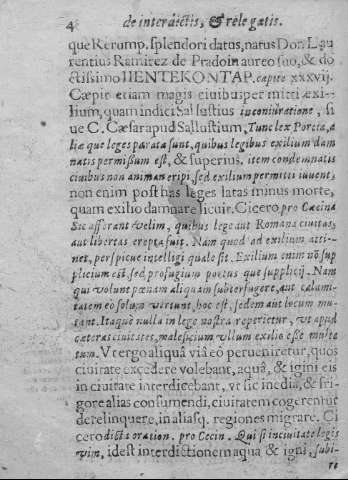 4 de interdictis, & relegatis.
que Rerump. splendori datus, natus Don. Lau
rentius Ramirez de Prado in aureo suo, & do
ctissimo ΠΕΝΤΕΚΟΝΤΑΡ. capite xxxvij.
Cæpit etiam magis ciuibus permitti exi-
lium, quam indici Sallustius in coniuratione, si
ue C. Cæsar apud Sallustium, Tunc lex Porcia, a
liæ que leges paratæ sunt, quibus legibus exilium dam
natis permissum est, & superius. item condemnatis
ciuibus non animan eripi, sed exilium permitti iuuent,
non enim post has leges latas minus morte,
quam exilio damnare licuit. Cicero pro Cæcina
Sic afferant velim, quibus lege aut Romana ciuitas,
aut libertas erepta suit. Nam quod ad exilium atti-
net, perspicue intelligi quale sit. Exilium enim nō sup
plicium est, sed profugium poetus que supplicij. Nam
qui volunt pœnam aliquam subterfugere, aut calami-
tatem eo solum vertunt, hoc est, sedem aut locum mu-
tant. Itaque nulla in lege nostra reperietur, vt apud
cæteras ciuitates, maleficium vllum exilio esse multa
tum. Vt ergo aliquâ viâ eò perueniretur, quos
ciuitate excedere volebant, aquâ, & igini eis
in ciuitate interdicebant, vt sic inedia, & fri-
gore alias consumendi, ciuitatem cogerentur
derelinquere, in aliasq. regiones migrare. Ci
cero dicta oration. pro Cecin. Qui si in ciuitate legis
vim, id est interdictionem aqua & igni, subi-
re